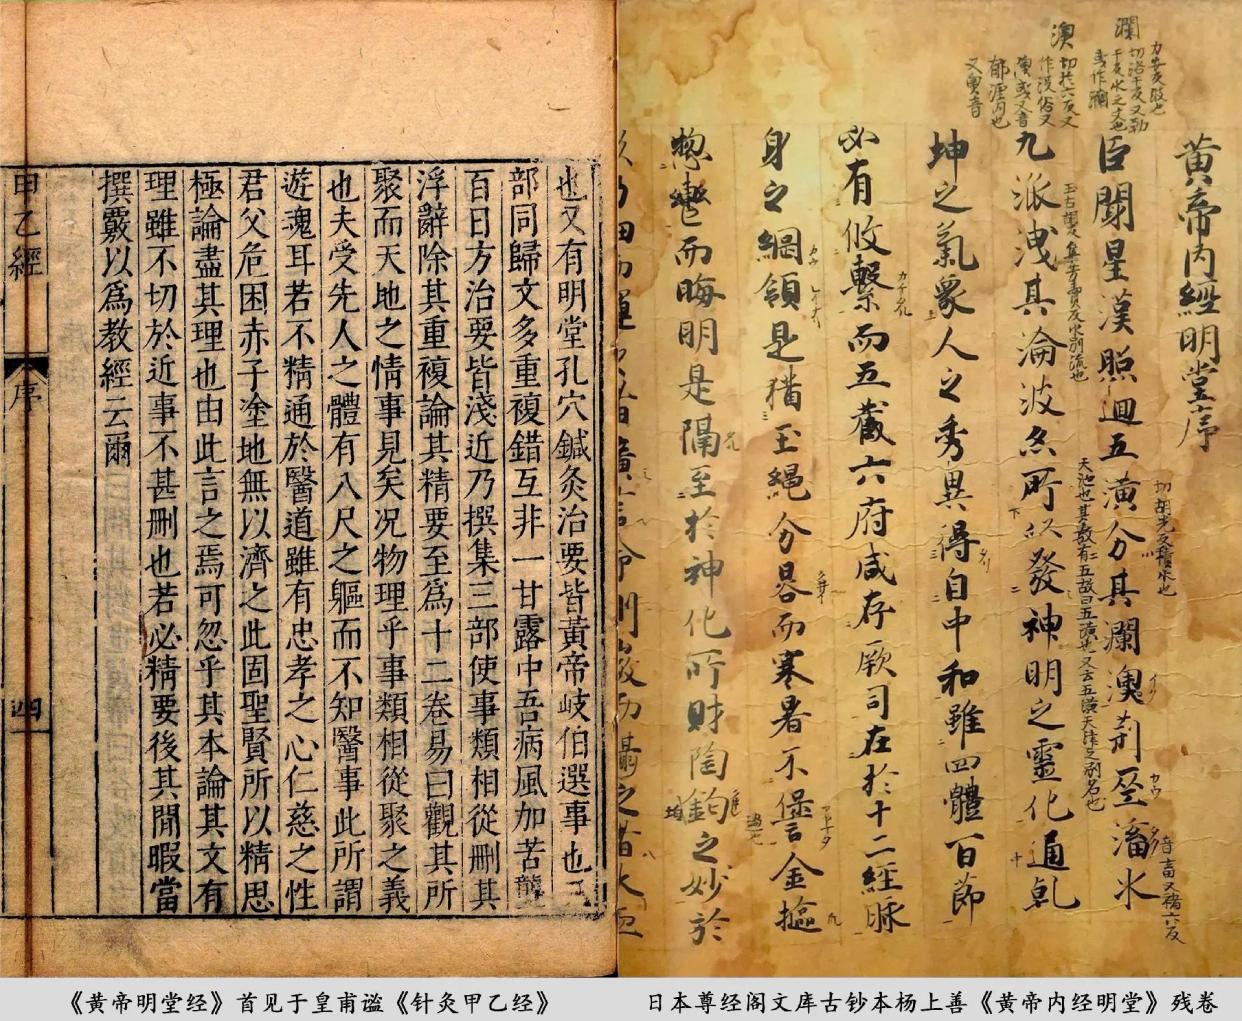 也又有明堂孔穴鍼灸治要皆黃帝岐伯選事也三
部同歸文多重複錯互非一甘露中吾病風加苦聾
百日方治要皆淺近乃撰集三部使事類相從刪其
浮辭除其重複論其精要至爲十二卷易曰觀其所
聚而天地之情事見矣况物理乎事類相從聚之義
也夫受先人之體有八尺之軀而不知醫事此所謂
遊魂耳若不精通於醫道雖有忠孝之心仁慈之性
君父危困赤子塗地無以濟之此固聖賢所以精思
極論盡其理也由此言之焉可忽乎其本論其文有
理雖不切於近事不甚刪也若必精要後其閒暇當
撰覈以爲教經云爾
甲乙經
序
四
黃帝内經明堂序
臣聞星漢照迴五潢分其瀾澳荆巫滀水
九派洩其淪波亦所以發神明之靈化通乹
坤之氣象人之秀異得自中和雖四體百節
必有攸繫而五藏六府咸存厥司在於十二經脉
身之綱領是猶玉繩分晷而寒暑不僣金樞
惣轡而晦明是隔至於神化所財陶鈞之妙於
瀾
澳
天池也其數有五故曰五潢也又云五潢天津之別名也
《黄帝明堂经》首见于皇甫谧《针灸甲乙经》
日本尊经阁文库古钞本杨上善《黄帝内经明堂》残卷